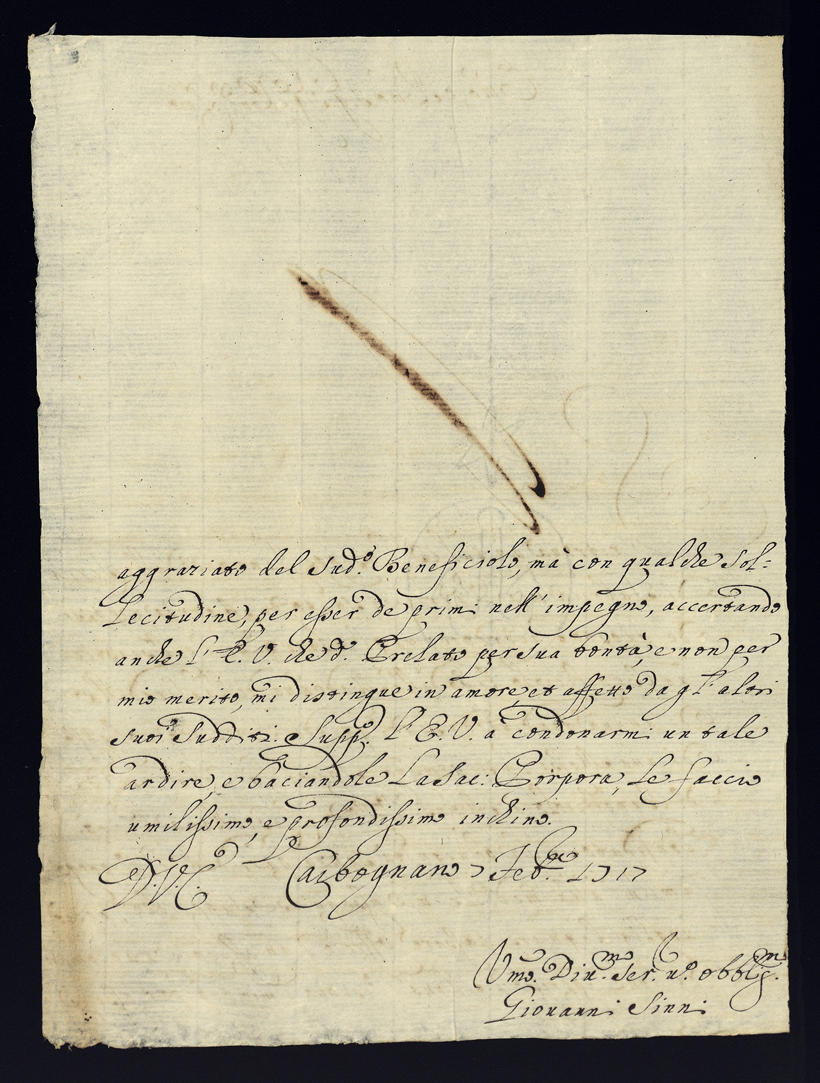 aggraziato del sud.º Beneficiolo, mà con qualche sol=
lecitudine, per esser de primi nell'impegno, accertando
anche l'E.V. che d.º Prelato per sua bontà, e non per
mio merito, mi distingue in amore, et affetto da gl'altri
suoi Sudditi. Supp.º l'E.V. à condonarmi un tale
ardire, e baciandole La Sac: Porpora, Le faccio
umilissimo, e profondissimo inchino.
D.V.E. Carbognano 7 Feb.º 1717
Vmo. Diu.mo Ser. u.º obblig.mo
Giovanni Sinni